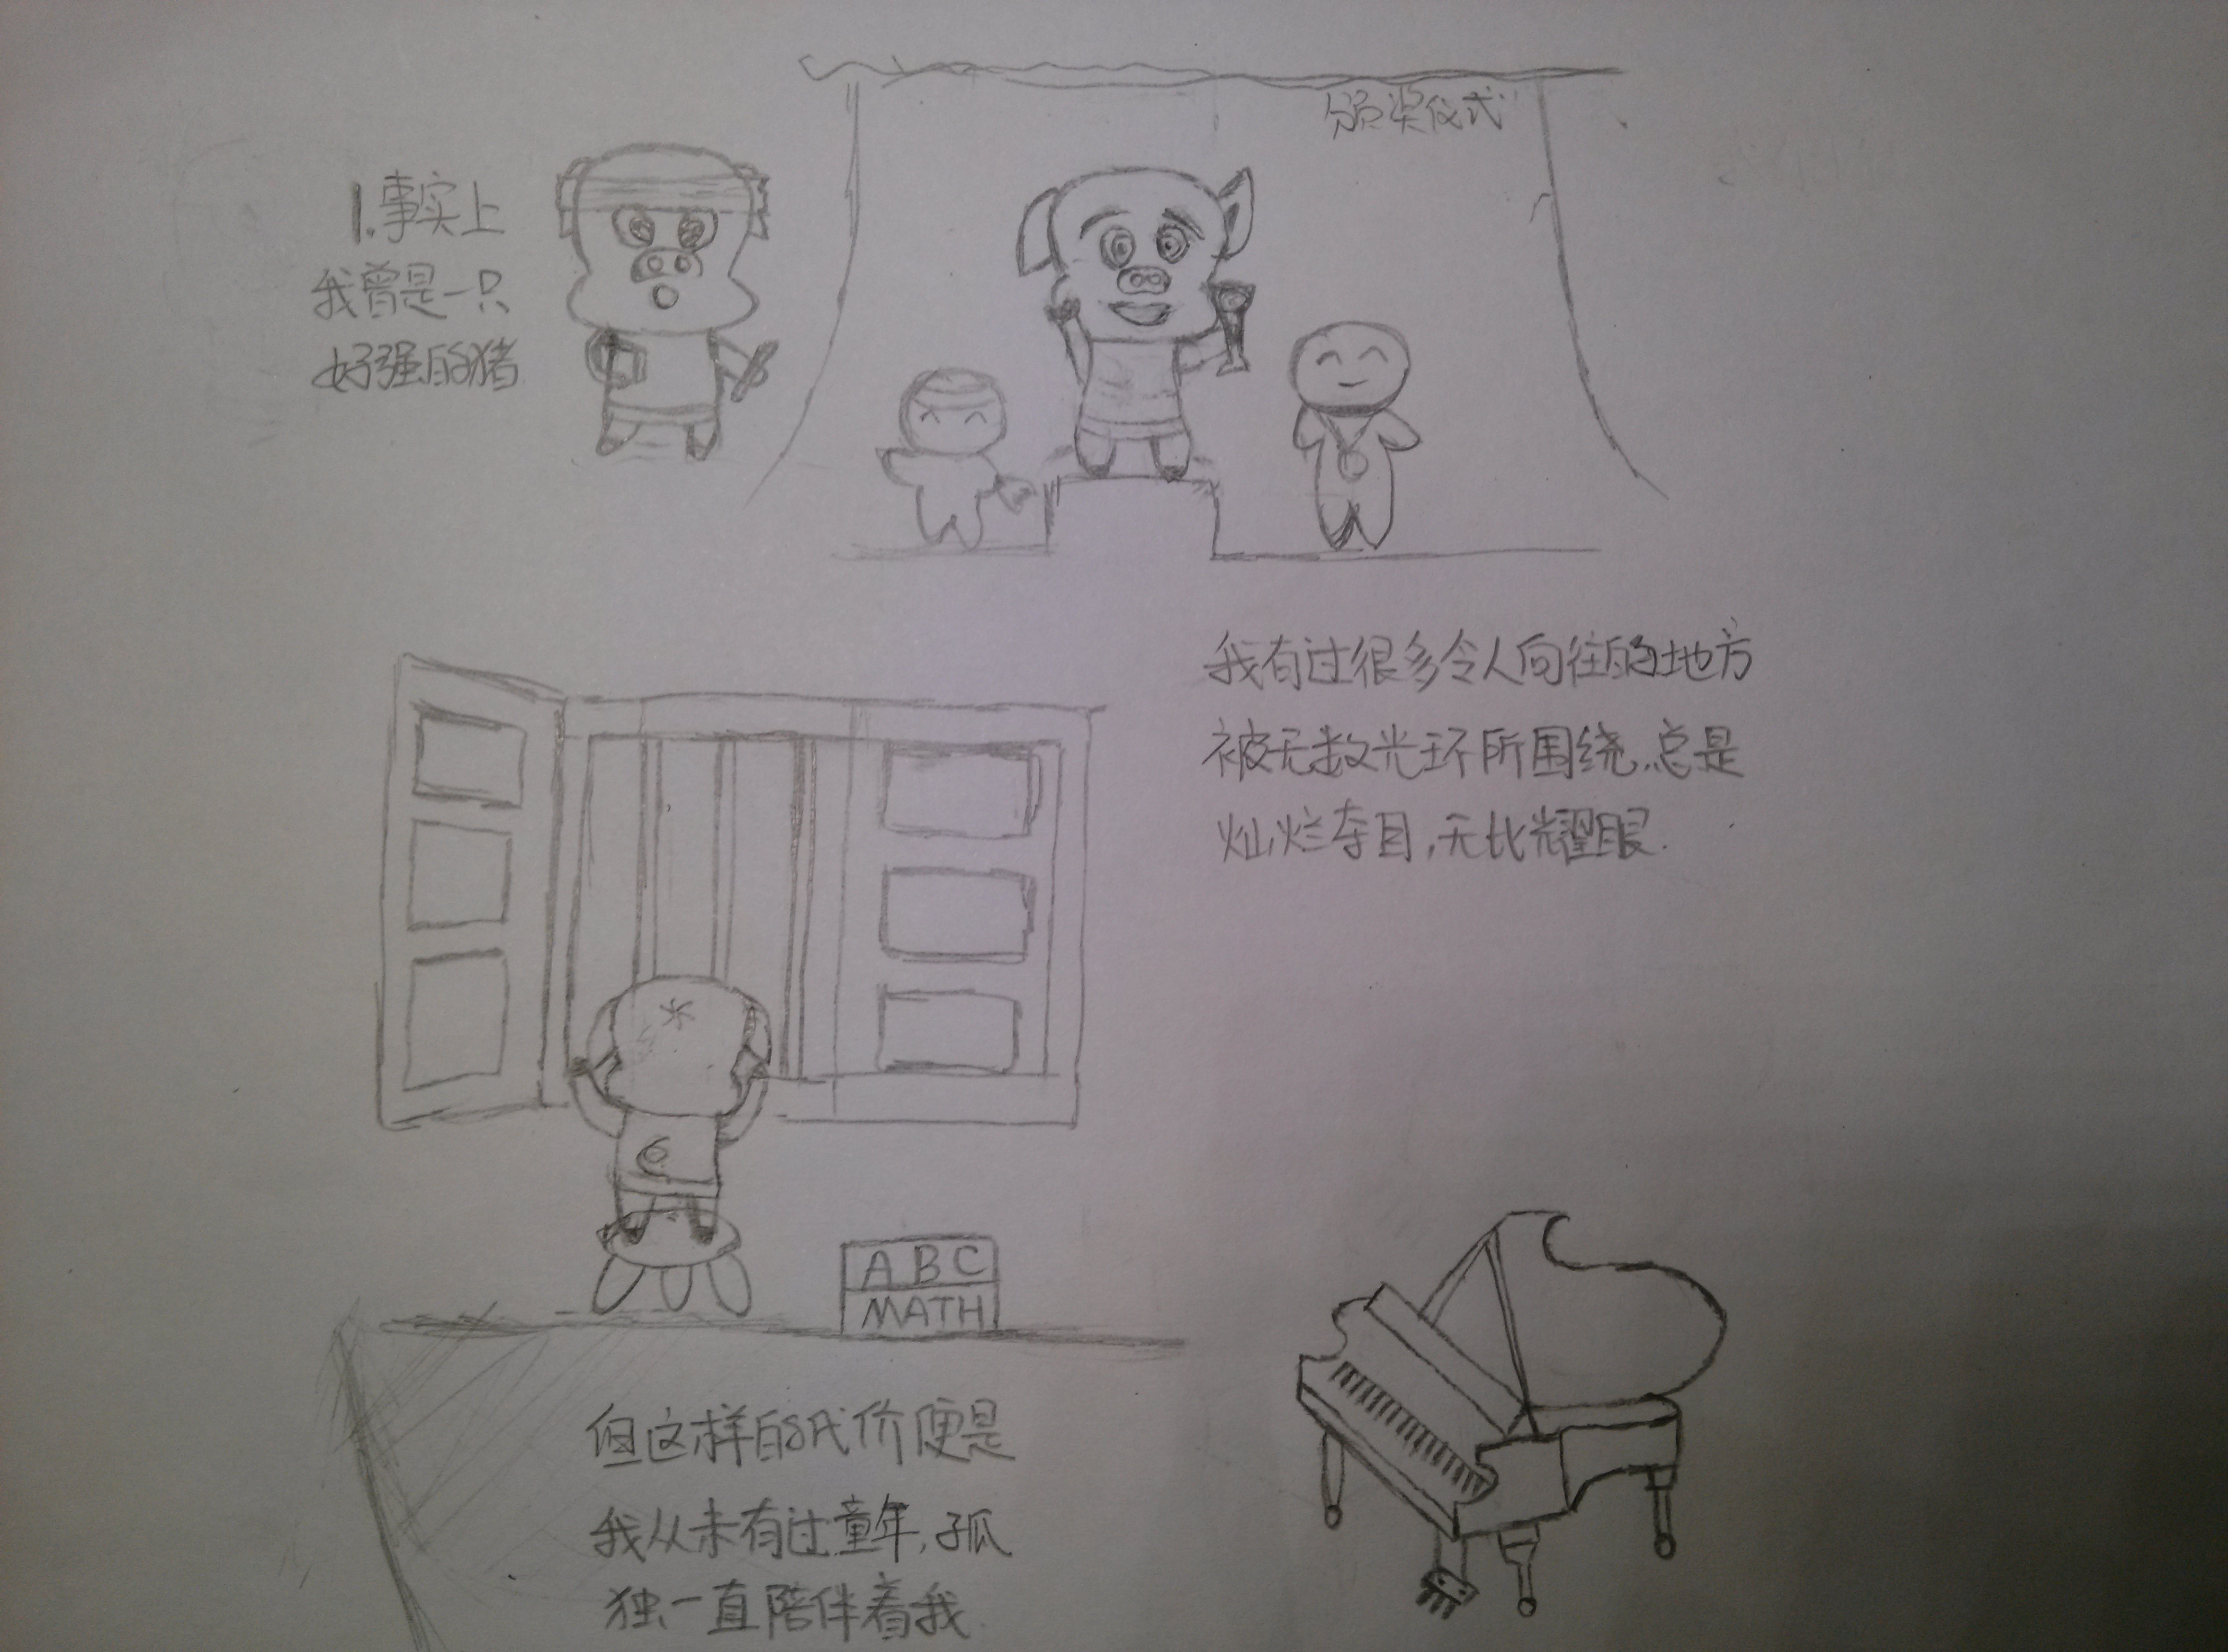 颁奖仪式
1.事实上
我曾是一只
好强的猪
我有过很多令人向往的地方
被无数光环所围绕,总是
灿烂夺目,无比耀眼.
ABC
MATH
但这样的代价便是
我从未有过童年,孤
独一直陪伴着我.